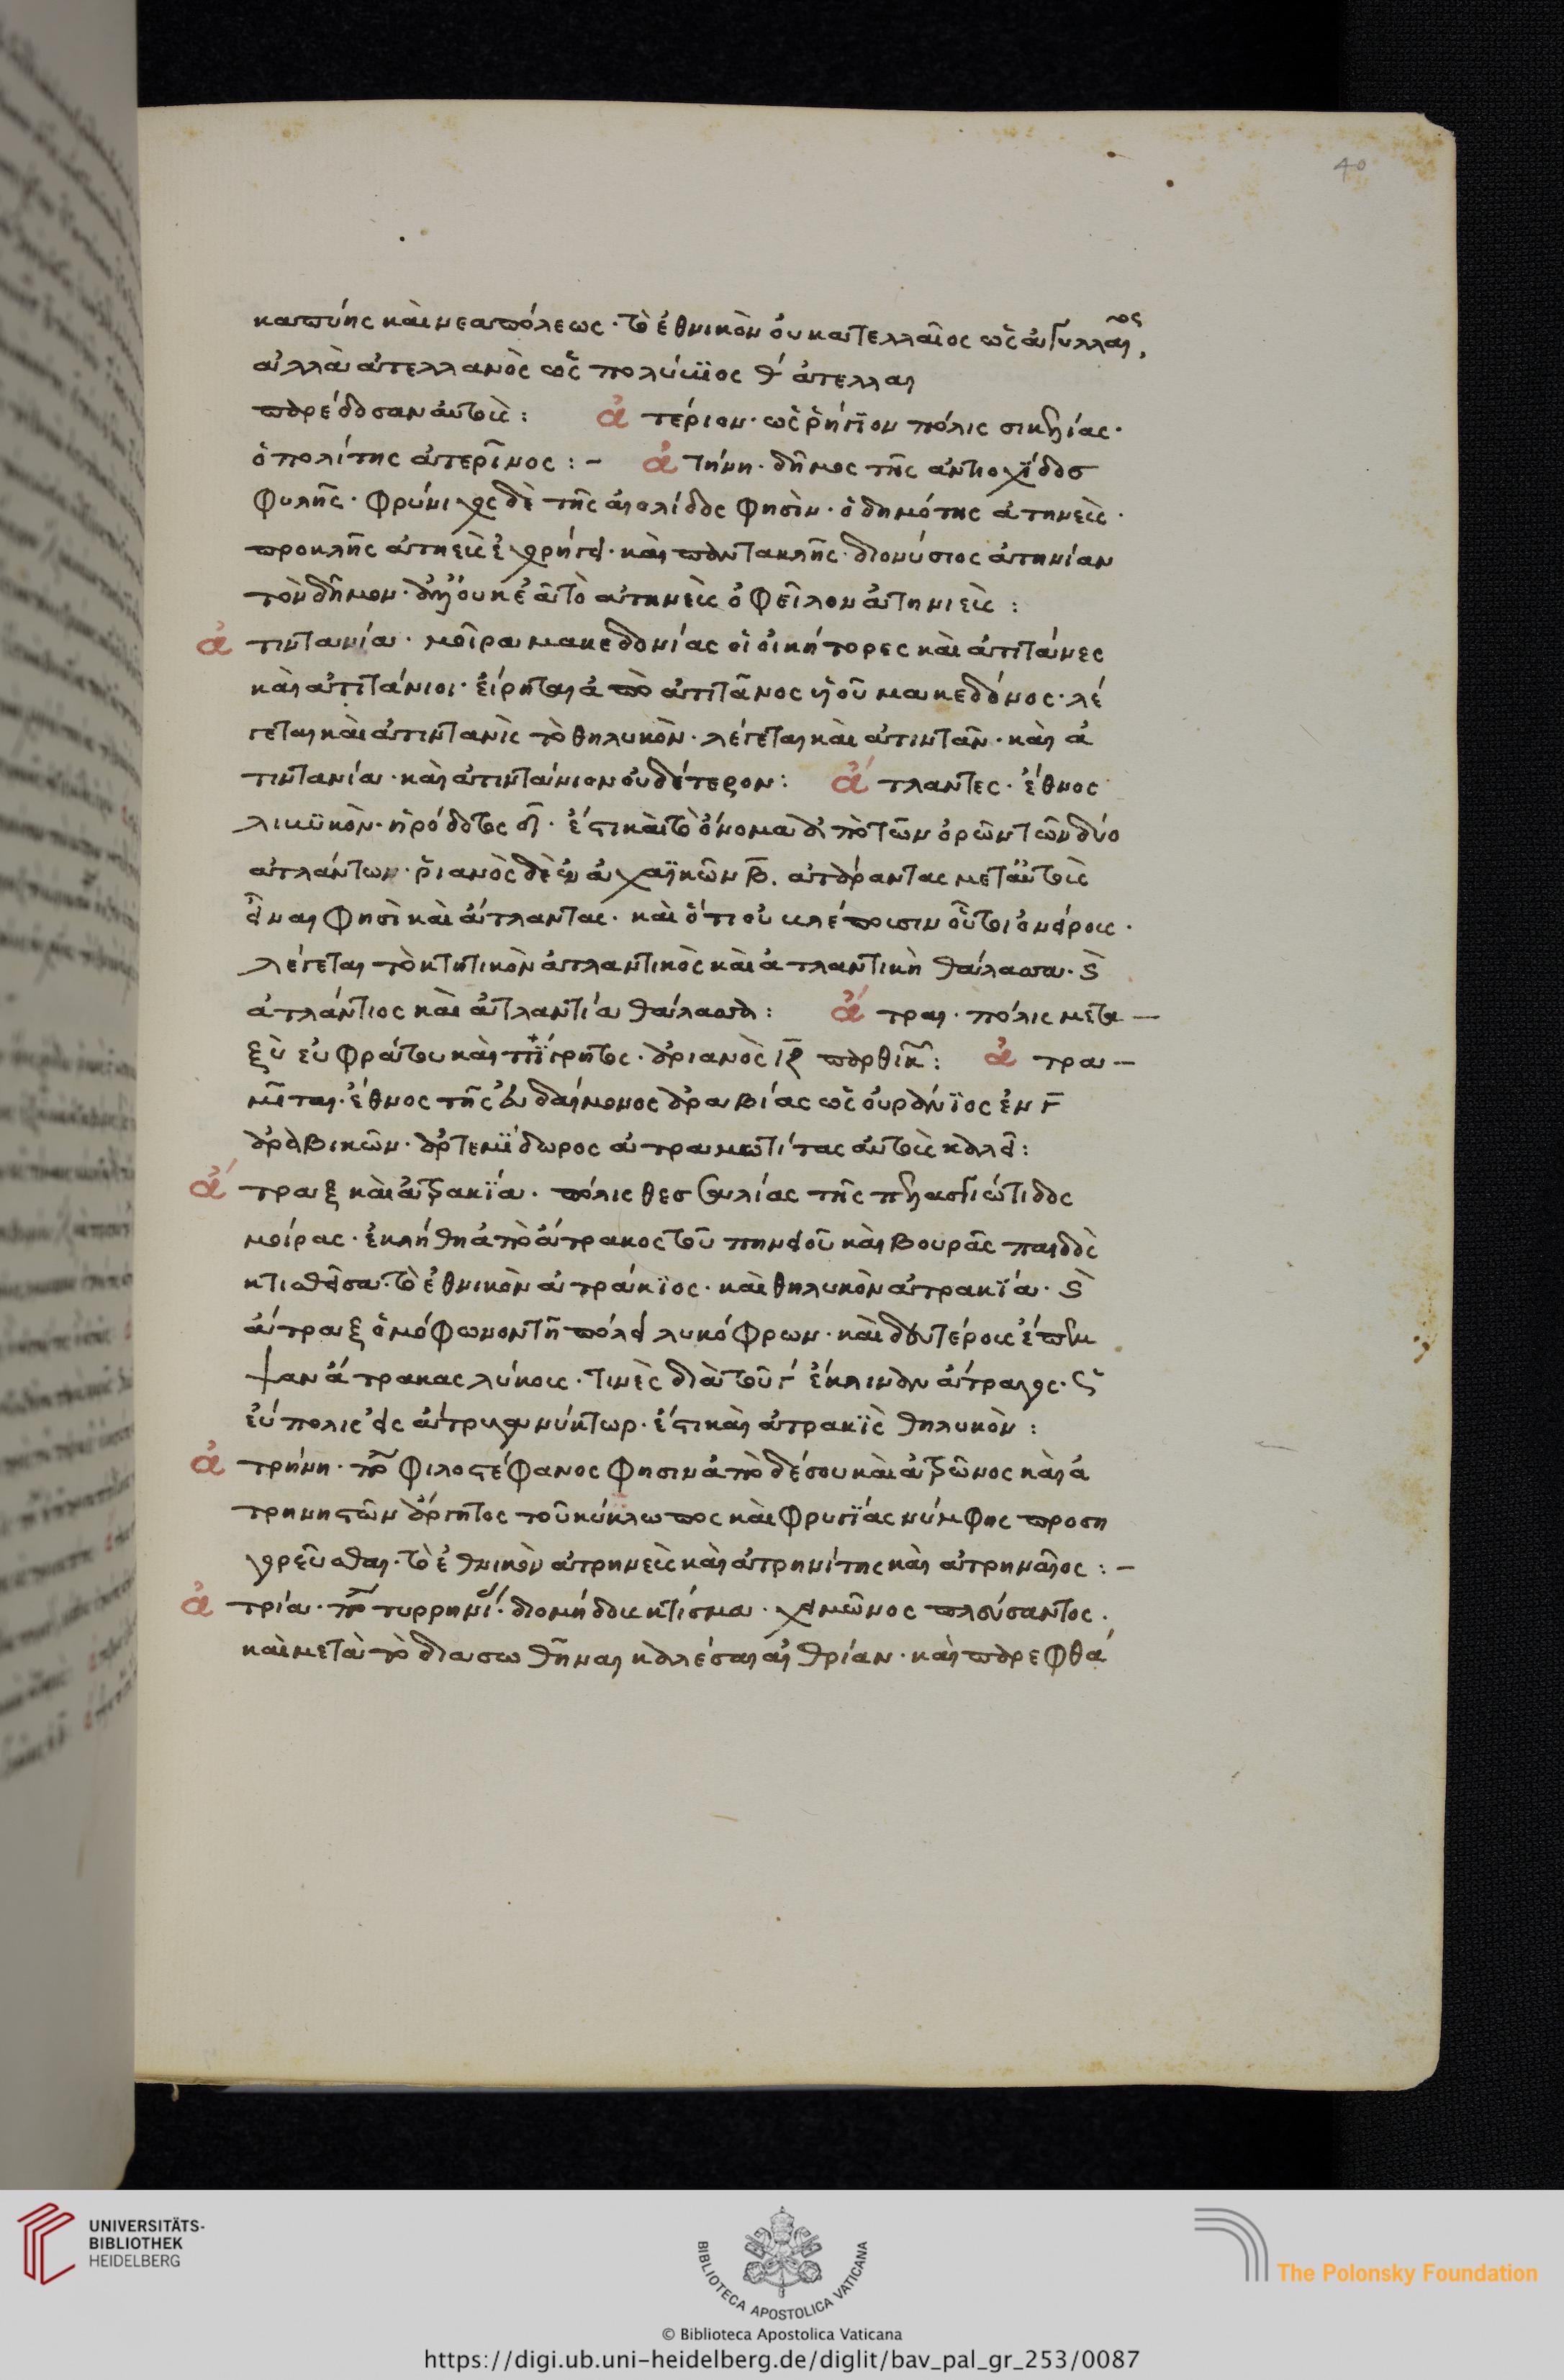 40
καπύης καὶ νεαπόλεως · τὸ ἐθνικὸν οὐκ ἀτελλαῖος ὡς ἀγυλλαῖος,
ἀλλὰ ἀτελλανὸς ὡς πολύϊος θ´ ἀτελλαι
παρέδοσαν αὐτοῖς : ἀτέριον · ὡς ῥήγϊον πόλις σικελίας ·
ὁ πολίτης ἀτερῖνος : – ἀτήνη · δῆμος τῆς ἀντιοχΐδος
φυλῆς · φρύνιχος δὲ τῆς αἰολίδος φησὶν · ὁ δημότης ἀτηνεὶς ·
προκλῆς ἀτηεὶς ἐχορήγει · καὶ παντακλῆς · διονύσιος ἀτηνίαν
τὸν δῆμον · ἀλλ' οὐκ ἐᾶ τὸ ἀτηνεὶς ὀφεῖλον ἀτηνιεὶς :
ἀτιντανία · μοῖρα μακεδονίας οἱ οἰκήτορες καὶ ἀτιτάνες
καὶ ἀτιτάνιοι · εἴρηται ἀπὸ ἀτιτᾶνος υἱοῦ μακεδόνος · λέ
γεται καὶ ἀτιντανὶς τὸ θηλυκὸν · λέγεται καὶ ἀτιντᾶν · καὶ ἀ
τιντανία · καὶ ἀτιντάνιον οὐδέτερον : ἄτλαντες · ἔθνος
λιβυκὸν · ἡρόδοτος δ´ · ἔστι καὶ τὸ ὄνομα ἀπὸ τῶν ὀρῶν τῶν δύο
ἀτλάντων · ῥιανὸς δὲ ἐν ἀχαϊκῶν β. ἀταράντας μετ' αὐτοῖς
εἶναι φησὶ καὶ ἄτλαντας · καὶ ὅτι οὐ βλέπωσιν οὗτοι ὀνείροις ·
λέγεται τὸ κτητικὸν ἀτλαντικὸς καὶ ἀτλαντικὴ θάλασσα · καὶ
ἀτλάντιος καὶ ἀτλαντία θάλασσα : ἄτραι · πόλις μετα –
ξὺ εὐφράτου καὶ τίγρητος · ἀριανὸς ιζ παρθικῶν : ἀτρα –
μῖται · ἔθνος τῆς εὐδαίμονος ἀραβίας ὡς οὐράνϊος ἐν γ
ἀραβικῶν · ἀρτεμΐδωρος ἀτραμωτίτας αὐτοὺς καλεῖ :
ἄτραξ καὶ ἀτρακΐα · πόλις θεσσαλίας τῆς πελασγιώτιδος
μοίρας · ἐκλήθη ἀπὸ ἄτρακος τοῦ πηνειοῦ καὶ βουρᾶς παιδὸς
κτισθεῖσα · τὸ ἐθνικὸν ἀτράκϊος · καὶ θηλυκὸν ἀτρακΐα · καὶ
ἄτραξ ὁμόφωνον τῇ πόλει λυκόφρων · καὶ δευτέροις ἔπεμ
ψαν ἄτρακας λύκοις · τινὲς διὰ τοῦ γ ἔκλιναν ἄτραγος · ς
εὔπολις εἰς ἄτραγα νύκτωρ · ἔστι καὶ ἀτρακΐς θηλυκὸν :
ἀτρήνη · πόλις φιλοστέφανος φησιν ἀπὸ δέσου καὶ ἀτρῶνος καὶ ἀ
τρηνης τῶν ἄργητος τοῦ κύκλωπος καὶ φρυγΐας νύμφης προση
γορεῦσθαι · τὸ ἐθνικὸν ἀτρηνεὶς καὶ ἀτρηνίτης καὶ ἀτρηναῖος : –
ἀτρία · πόλις τυρρηνίας · διομήδους κτίσμα · χειμῶνος πλεύσαντος ·
καὶ μετὰ τὸ διασωθῆναι καλέσαι αἰθρίαν · καὶ παρεφθά
UNIVERSITÄTS-
BIBLIOTHEK
HEIDELBERG
BIBLIOTECA APOSTOLICA VATICANA
The Polonsky Foundation
© Biblioteca Apostolica Vaticana
https://digi.ub.uni-heidelberg.de/diglit/bav_pal_gr_253/0087